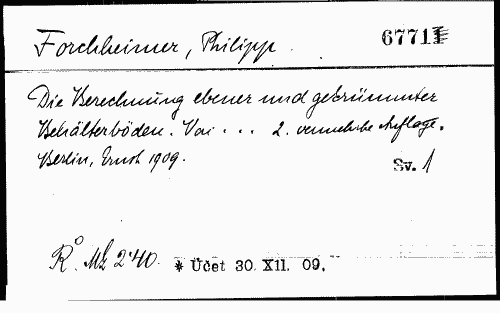 Forchheimer, Philipp. 67711
Die Berechnung ebener und gekrümmter
Behälterböden. Von ... 2. vermehrte Auflage.
Berlin, Ernst 1909. Sv. 1
R° 240. * Účet 30. XII. 09.